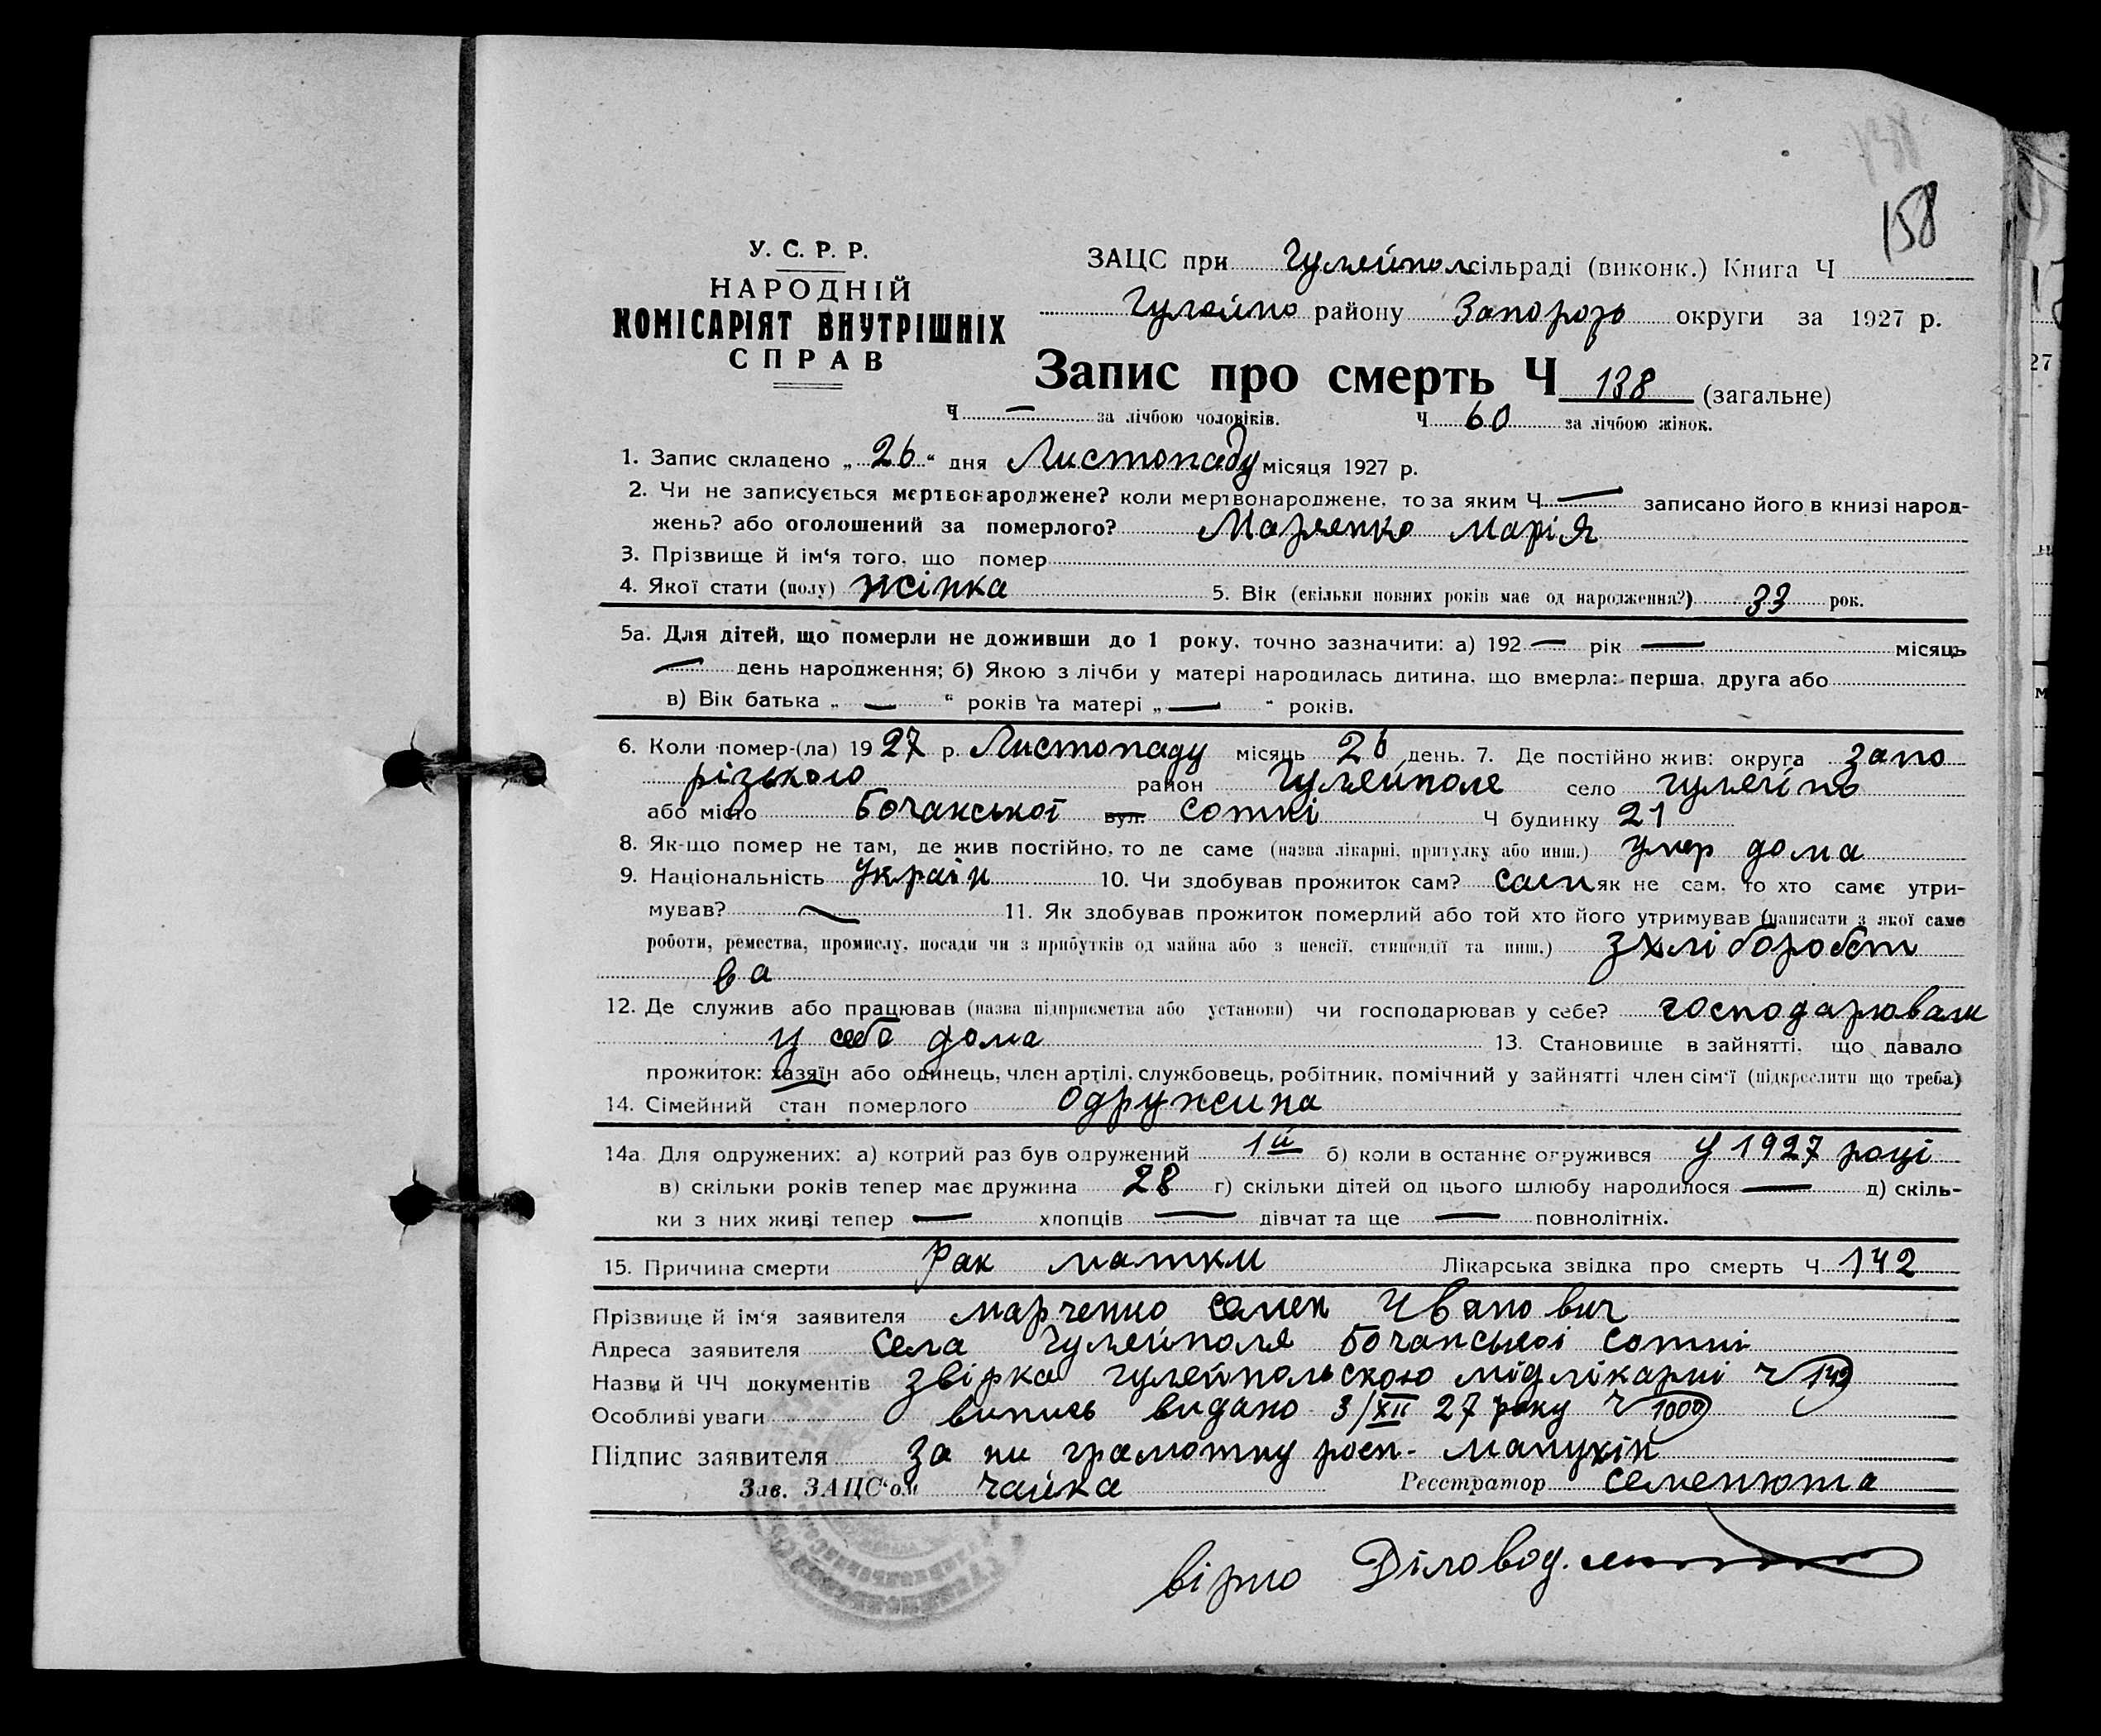 158
У. С. Р. Р.
НАРОДНІЙ
КОМІСАРІЯТ ВНУТРІШНІХ
СПРАВ
ЗАЦС при Гуляйпол сільраді (виконк.) Книга Ч
Гуляйпо району Запорозь округи за 1927 р.
Запис про смерть Ч 138 (загальне)
Ч — за лічбою чоловіків. Ч 60 за лічбою жінок.
1. Запис складено „ 26 “ дня Листопаду місяця 1927 р.
2. Чи не записується мертвонароджене? коли мертвонароджене, то за яким Ч — записано його в книзі народ-
жень? або оголошений за померлого? Марченко Марія
3. Прізвище й ім'я того, що помер
4. Якої стати (полу) жінка 5. Вік (скільки повних років має од народження?) 33 рок.
5а. Для дітей, що померли не доживши до 1 року, точно зазначити: а) 192 — рік — місяць
— день народження; б) Якою з лічби у матері народилась дитина, що вмерла: перша, друга або
в) Вік батька „ — “ років та матері „ — “ років.
6. Коли помер-(ла) 19 27 р. Листопаду місяць 26 день. 7. Де постійно жив: округа запо
різького район Гуляйполе село гуляйпо
або місто Бочанської вул. сотні Ч будинку 21
8. Як-що помер не там, де жив постійно, то де саме (назва лікарні, притулку або инш.) умер дома
9. Національність Україн 10. Чи здобував прожиток сам? сам як не сам, то хто саме утри-
мував? — 11. Як здобував прожиток померлий або той хто його утримував (написати з якої саме
роботи, ремества, промислу, посади чи з прибутків од майна або з пенсії, стипендії та инш.) з хліборобст
ва
12. Де служив або працював (назва підприємства або установи) чи господарював у себе? господарювали
у себе дома 13. Становище в зайнятті, що давало
прожиток: хазяїн або одинець, член артілі, службовець, робітник, помічний у зайнятті член сім'ї (підкреслити що треба)
14. Сімейний стан померлого Одружина
14а. Для одружених: а) котрий раз був одружений 1й б) коли в останнє одружився у 1927 році
в) скільки років тепер має дружина 28 г) скільки дітей од цього шлюбу народилося — д) скіль-
ки з них живі тепер — хлопців — дівчат та ще — повнолітніх.
15. Причина смерти Рак матки Лікарська звідка про смерть Ч 142
Прізвище й ім'я заявителя марченко семен Иванович
Адреса заявителя села Гуляйполя Бочанської сотні
Назви й ЧЧ документів звірка гуляйпольскою лікарні ч 142
Особливі уваги випись видано 3/XII 27 року Ч 1000
Підпис заявителя за ни грамотну росп.
Зав. ЗАЦС'ом чайка Реєстратор семенюта
вірно Діловод.